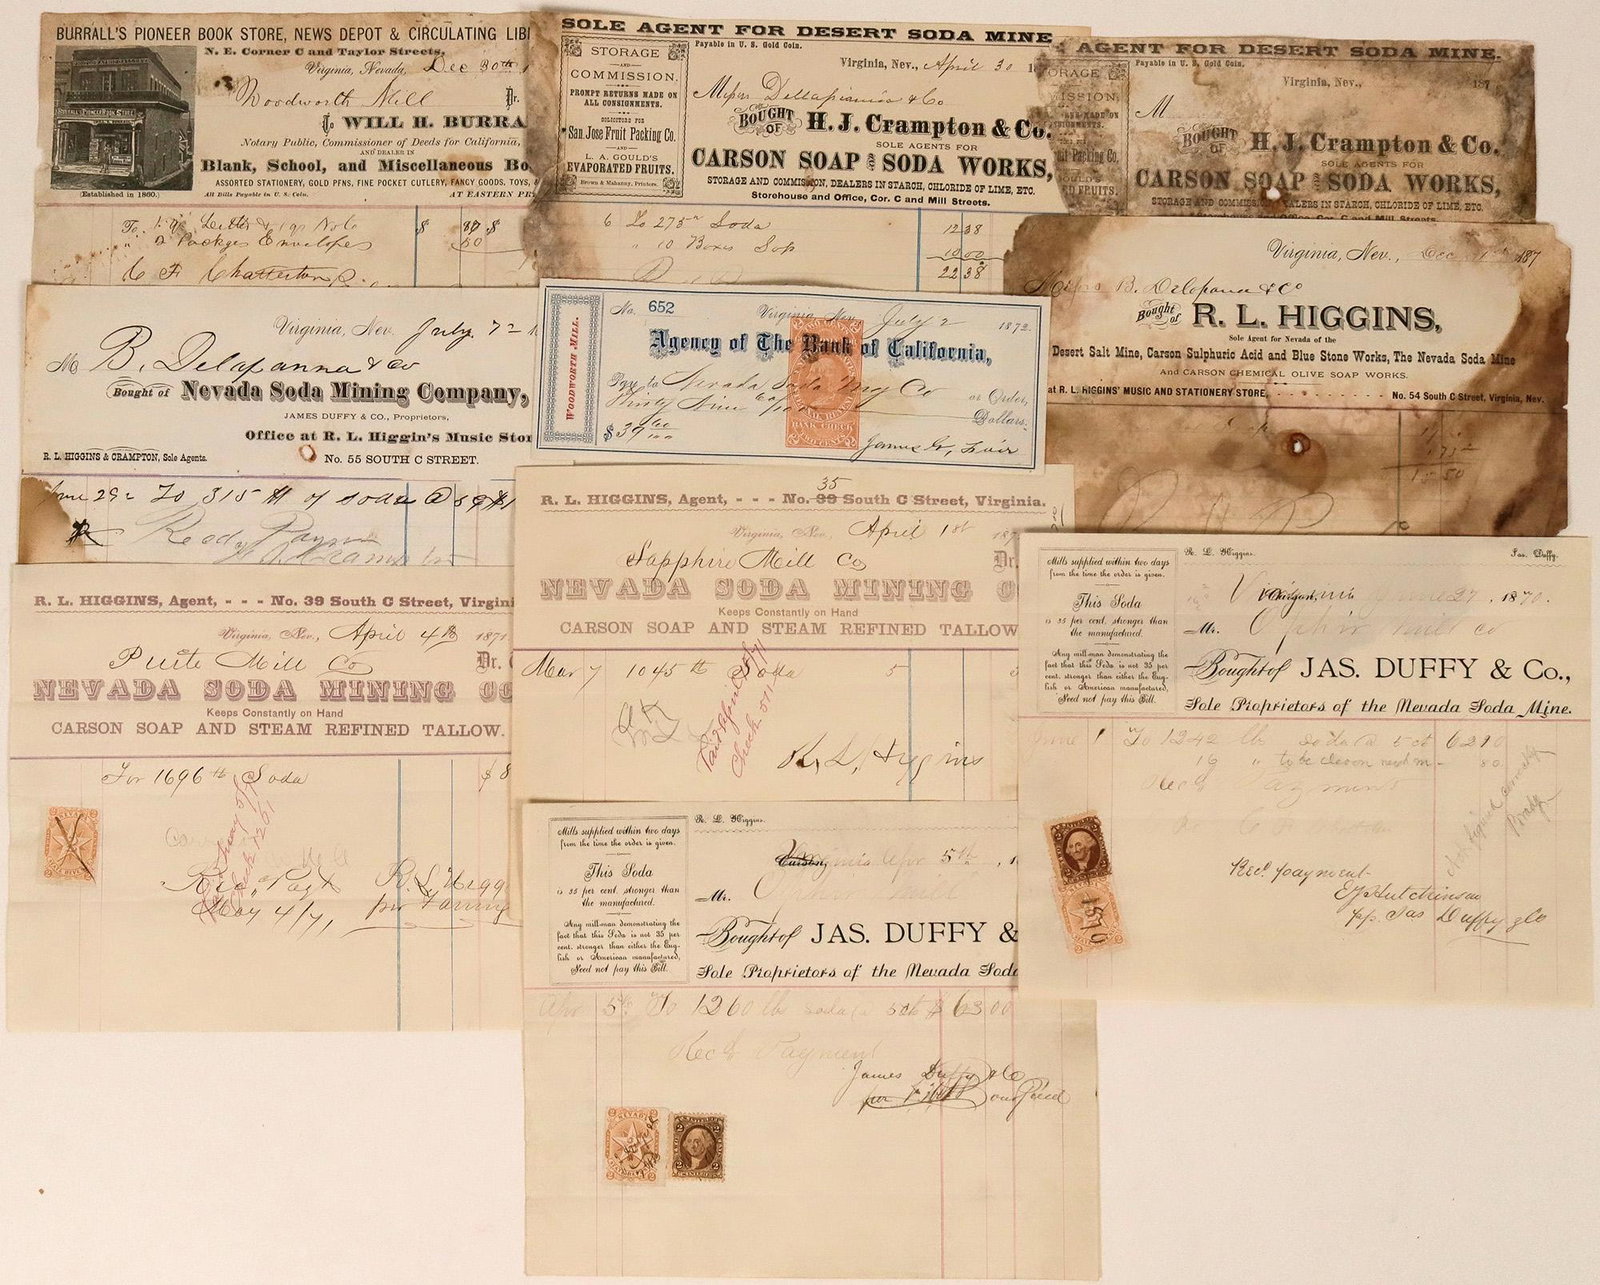 BURRALL'S PIONEER BOOK STORE, NEWS DEPOT & CIRCULATING LIB
N. E. Corner C and Taylor Streets,
Virginia, Nevada, Dec 30th 1
Woodworth Mill Dr.
To WILL H. BURRA
Notary Public, Commissioner of Deeds for California,
AND DEALER IN
Blank, School, and Miscellaneous Bo
ASSORTED STATIONERY, GOLD PENS, FINE POCKET CUTLERY, FANCY GOODS, TOYS, &
(Established in 1860.)
All Bills Payable in U. S. Coin.
AT EASTERN PR
2 Packges Envelopes 50
SOLE AGENT FOR DESERT SODA MINE
Payable in U. S. Gold Coin.
STORAGE
AND
COMMISSION.
PROMPT RETURNS MADE ON
ALL CONSIGNMENTS.
SOLICITORS FOR
San Jose Fruit Packing Co.
AND
L. A. GOULD'S
EVAPORATED FRUITS.
Brown & Mahanny, Printers.
Virginia, Nev., April 30 18
BOUGHT OF H. J. Crampton & Co.
SOLE AGENTS FOR
CARSON SOAP AND SODA WORKS,
STORAGE AND COMMISSION, DEALERS IN STARCH, CHLORIDE OF LIME, ETC.
Storehouse and Office, Cor. C and Mill Streets.
Soda 12 38
10 Boxes Sop 10 00
22 38
AGENT FOR DESERT SODA MINE.
Payable in U. S. Gold Coin.
Virginia, Nev., 187
M
BOUGHT OF H. J. Crampton & Co.
SOLE AGENTS FOR
CARSON SOAP & SODA WORKS,
STORAGE AND COMMISSION, DEALERS IN STARCH, CHLORIDE OF LIME, ETC.
Virginia, Nev., Dec 187
Bought of R. L. HIGGINS,
Sole Agent for Nevada of the
Desert Salt Mine, Carson Sulphuric Acid and Blue Stone Works, The Nevada Soda Mine
And CARSON CHEMICAL OLIVE SOAP WORKS.
at R. L. HIGGINS' MUSIC AND STATIONERY STORE, No. 54 South C Street, Virginia, Nev.
Virginia, Nev. July 7
M B. Delapanna & Co
Bought of Nevada Soda Mining Company,
JAMES DUFFY & CO., Proprietors,
Office at R. L. Higgin's Music Stor
R. L. HIGGINS & CRAMPTON, Sole Agents.
No. 55 SOUTH C STREET.
June 29 To 315 # of soda @
No. 652 Virginia, Nev. July 2 1872
WOODWORTH MILL.
Agency of The Bank of California,
Pay to Nevada Soda Mg Co or Order,
Thirty Nine 60/100 Dollars.
$39 60/100
James G. Fair
BANK CHECK
R. L. HIGGINS, Agent, - - - No. 39 35 South C Street, Virginia.
Virginia, Nev., April 1st 187
Sapphire Mill Co Dr.
NEVADA SODA MINING C
Keeps Constantly on Hand
CARSON SOAP AND STEAM REFINED TALLOW
Mar 7 1045 lb Soda 5
Paid April 5/71
Check 511
R. L. Higgins
R. L. HIGGINS, Agent, - - - No. 39 South C Street, Virgini
Virginia, Nev., April 4th 1871
Mill Co Dr.
NEVADA SODA MINING CO
Keeps Constantly on Hand
CARSON SOAP AND STEAM REFINED TALLOW.
For 1696 lb Soda $ 8
May 4/71
Mills supplied within two days
from the time the order is given.
This Soda
is 35 per cent. stronger than
the manufactured.
Any mill-man demonstrating the
fact that this Soda is not 35 per
cent. stronger than either the Eng-
lish or American manufactured,
Need not pay this Bill.
R. L. Higgins. Jas. Duffy.
Virginia June 27, 1870.
Mr. Ophir Mill Co
Bought of JAS. DUFFY & Co.,
Sole Proprietors of the Nevada Soda Mine.
June 1 To 1242 lbs soda @ 5 ct 62 10
Rec'd Payment
Rec'd payment
E J Hutchinson
pp. Jas Duffy & Co
1870
Mills supplied within two days
from the time the order is given.
This Soda
is 35 per cent. stronger than
the manufactured.
Any mill-man demonstrating the
fact that this Soda is not 35 per
cent. stronger than either the Eng-
lish or American manufactured,
Need not pay this Bill.
R. L. Higgins.
Virginia Apr 5th, 1
Mr. Ophir Mill
Bought of JAS. DUFFY &
Sole Proprietors of the Nevada Soda
Apr 5th To 1260 lbs soda @ 5 ct $ 63 00
Rec'd Payment
James Duffy & Co